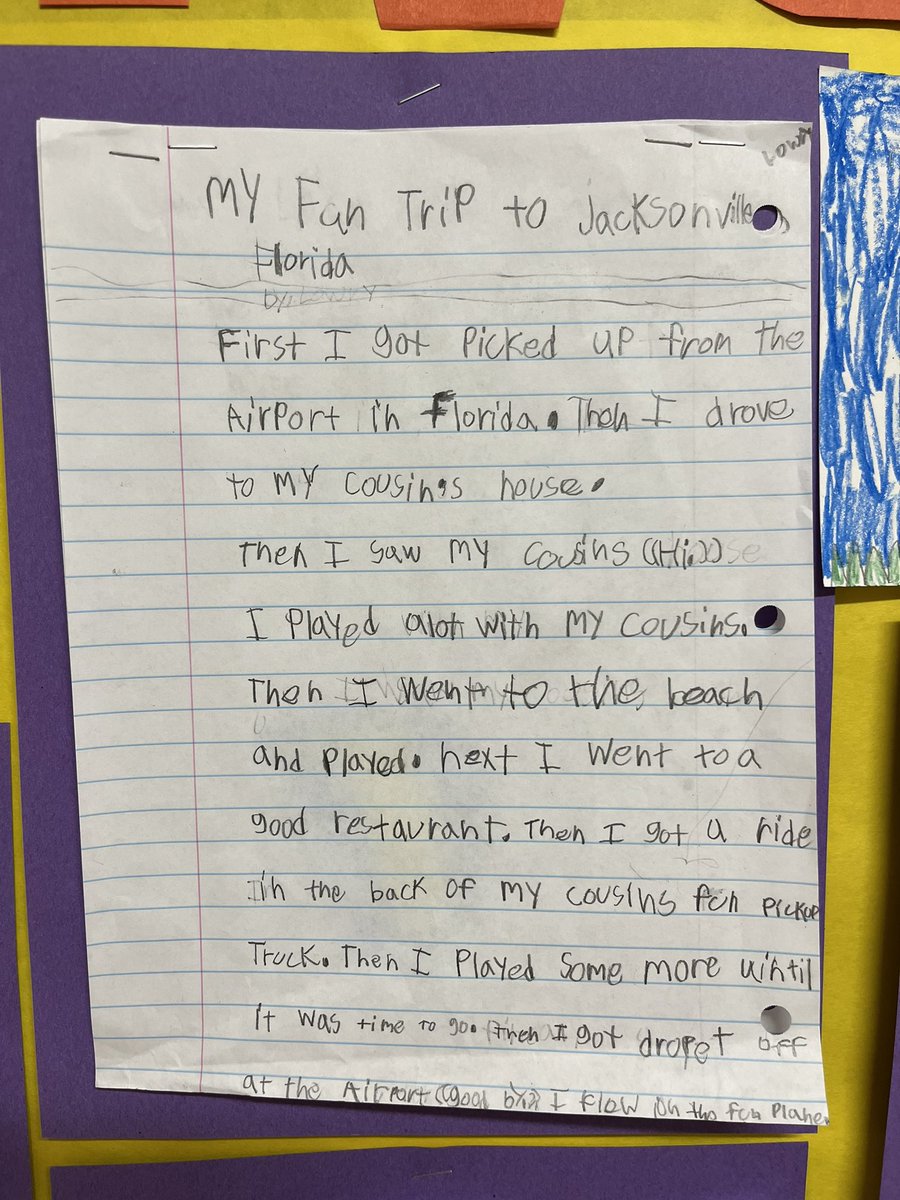 MY Fan Trip to Jacksonville
Florida
First I got Picked up from the
Airport in Florida. Then I drove
to my cousin's house.
Then I saw my cousins ((Hi.))
I Played alot with my cousins.
Then I went to the beach
and Played. next I went to a
good restaurant. Then I got a ride
in the back of my cousins fun pickup
Truck. Then I Played some more uintil
it was time to go. then I got dropet off
at the Airport ((good bye)) I flow on the fun Plane